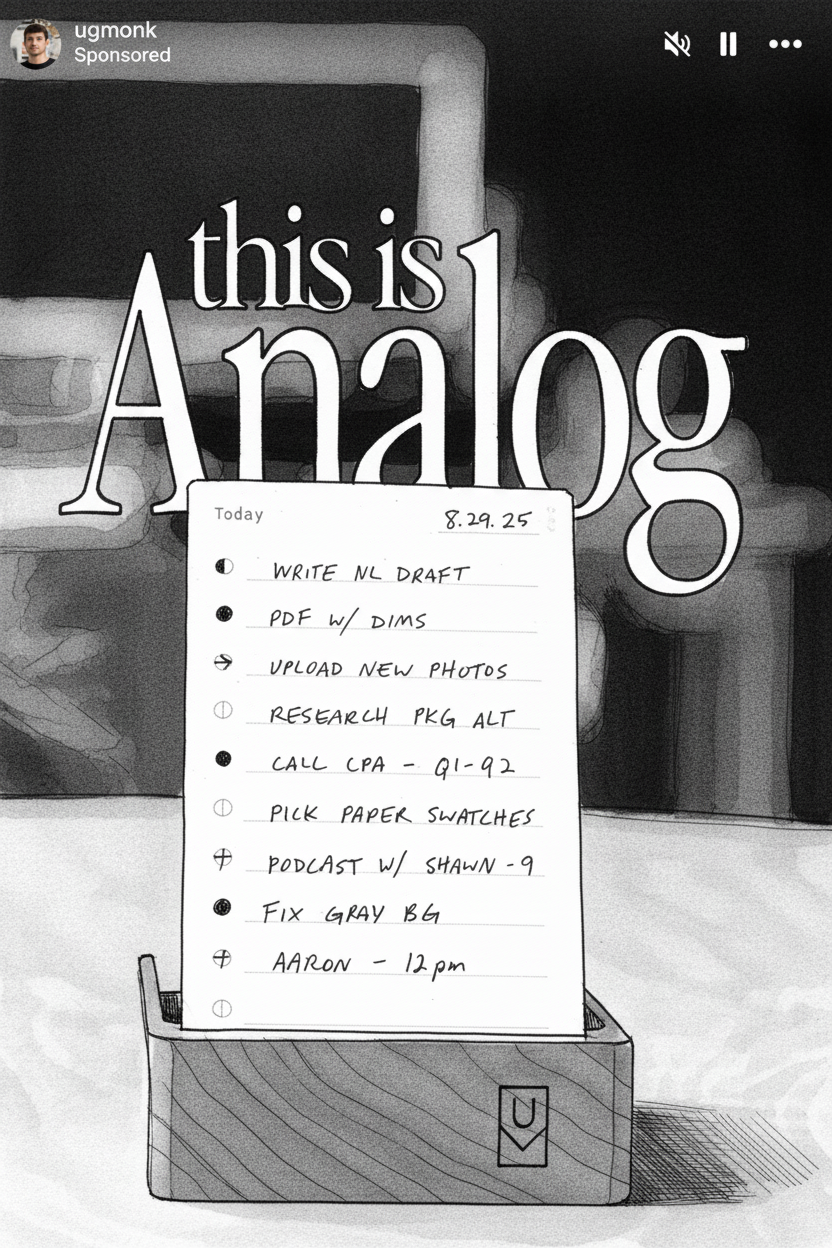 ugmonk
Sponsored
this is
Analog
Today 8.29.25
WRITE NL DRAFT
PDF W/ DIMS
UPLOAD NEW PHOTOS
RESEARCH PKG ALT
CALL CPA - Q1-92
PICK PAPER SWATCHES
PODCAST W/ SHAWN -9
FIX GRAY BG
AARON - 12pm
U